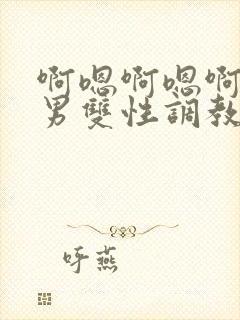 啊嗯啊嗯啊
男雙性調教
呼燕